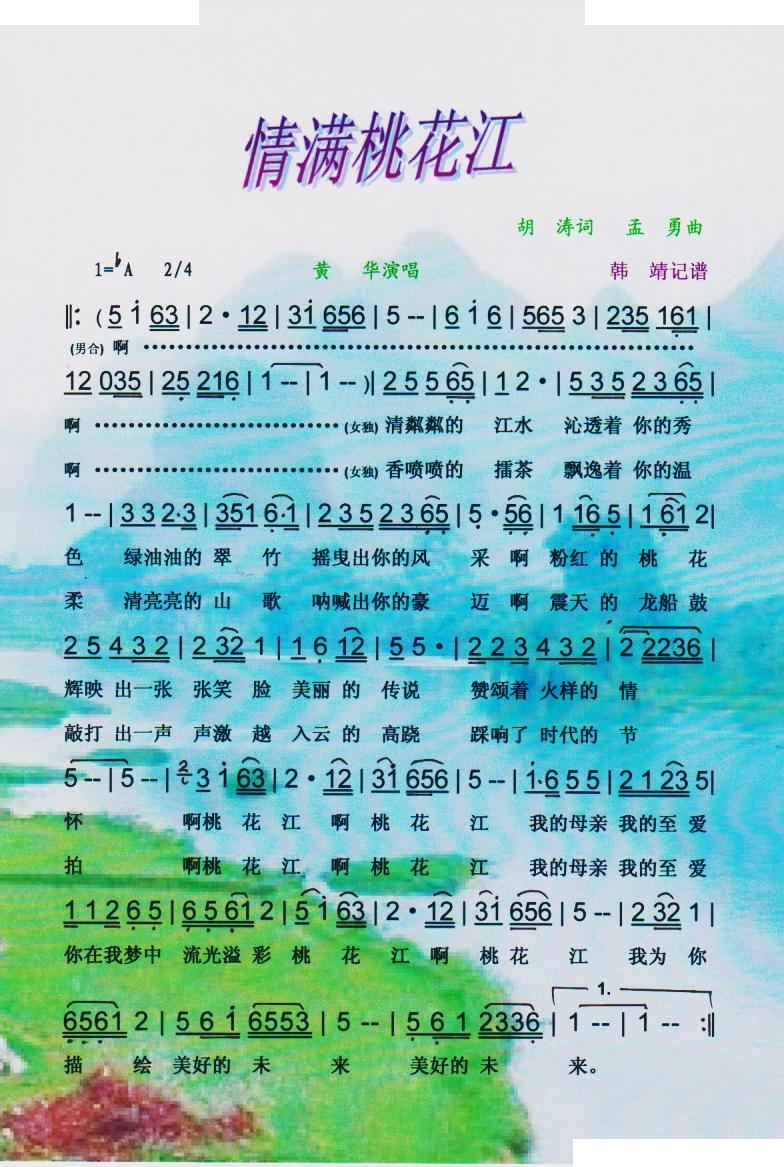 情满桃花江
胡 涛词 孟 勇曲
1=♭A 2/4 黄 华演唱 韩 靖记谱
‖: ( 5 i 63 | 2 · 12 | 3i 656 | 5 -- | 6 i 6 | 565 3 | 235 161 |
(男合) 啊 ························
12 035 | 25 216 | 1 -- | 1 -- )| 2 5 5 65 | 1 2 · | 5 3 5 2 3 65 |
啊 ················ (女独) 清粼粼的 江水 沁透着 你的秀
啊 ················ (女独) 香喷喷的 擂茶 飘逸着 你的温
1 -- | 3 3 2·3 | 351 6·1 | 2 3 5 2 3 65 | 5 · 56 | 1 16 5 | 1 61 2|
色 绿油油的 翠 竹 摇曳出你的风 采 啊 粉红 的 桃 花
柔 清亮亮的 山 歌 呐喊出你的豪 迈 啊 震天 的 龙船 鼓
2 5 4 3 2 | 2 32 1 | 1 6 12 | 5 5 · | 2 2 3 4 3 2 | 2 2236 |
辉映 出一张 张笑 脸 美丽 的 传说 赞颂着 火样的 情
敲打 出一声 声激 越 入云 的 高跷 踩响了 时代的 节
5 -- | 5 -- | 3 i 63 | 2 · 12 | 3i 656 | 5 -- | i·6 5 5 | 2 1 23 5|
怀 啊桃 花 江 啊 桃 花 江 我的母亲 我的至 爱
拍 啊桃 花 江 啊 桃 花 江 我的母亲 我的至 爱
1 1 2 6 5 | 6 5 61 2 | 5 i 63 | 2 · 12 | 3i 656 | 5 -- | 2 32 1 |
你在我梦中 流光溢 彩 桃 花 江 啊 桃 花 江 我为 你
6561 2 | 5 6 i 6553 | 5 -- | 5 6 1 2336 | 1. 1 -- | 1 -- :‖
描 绘 美好的 未 来 美好的 未 来。